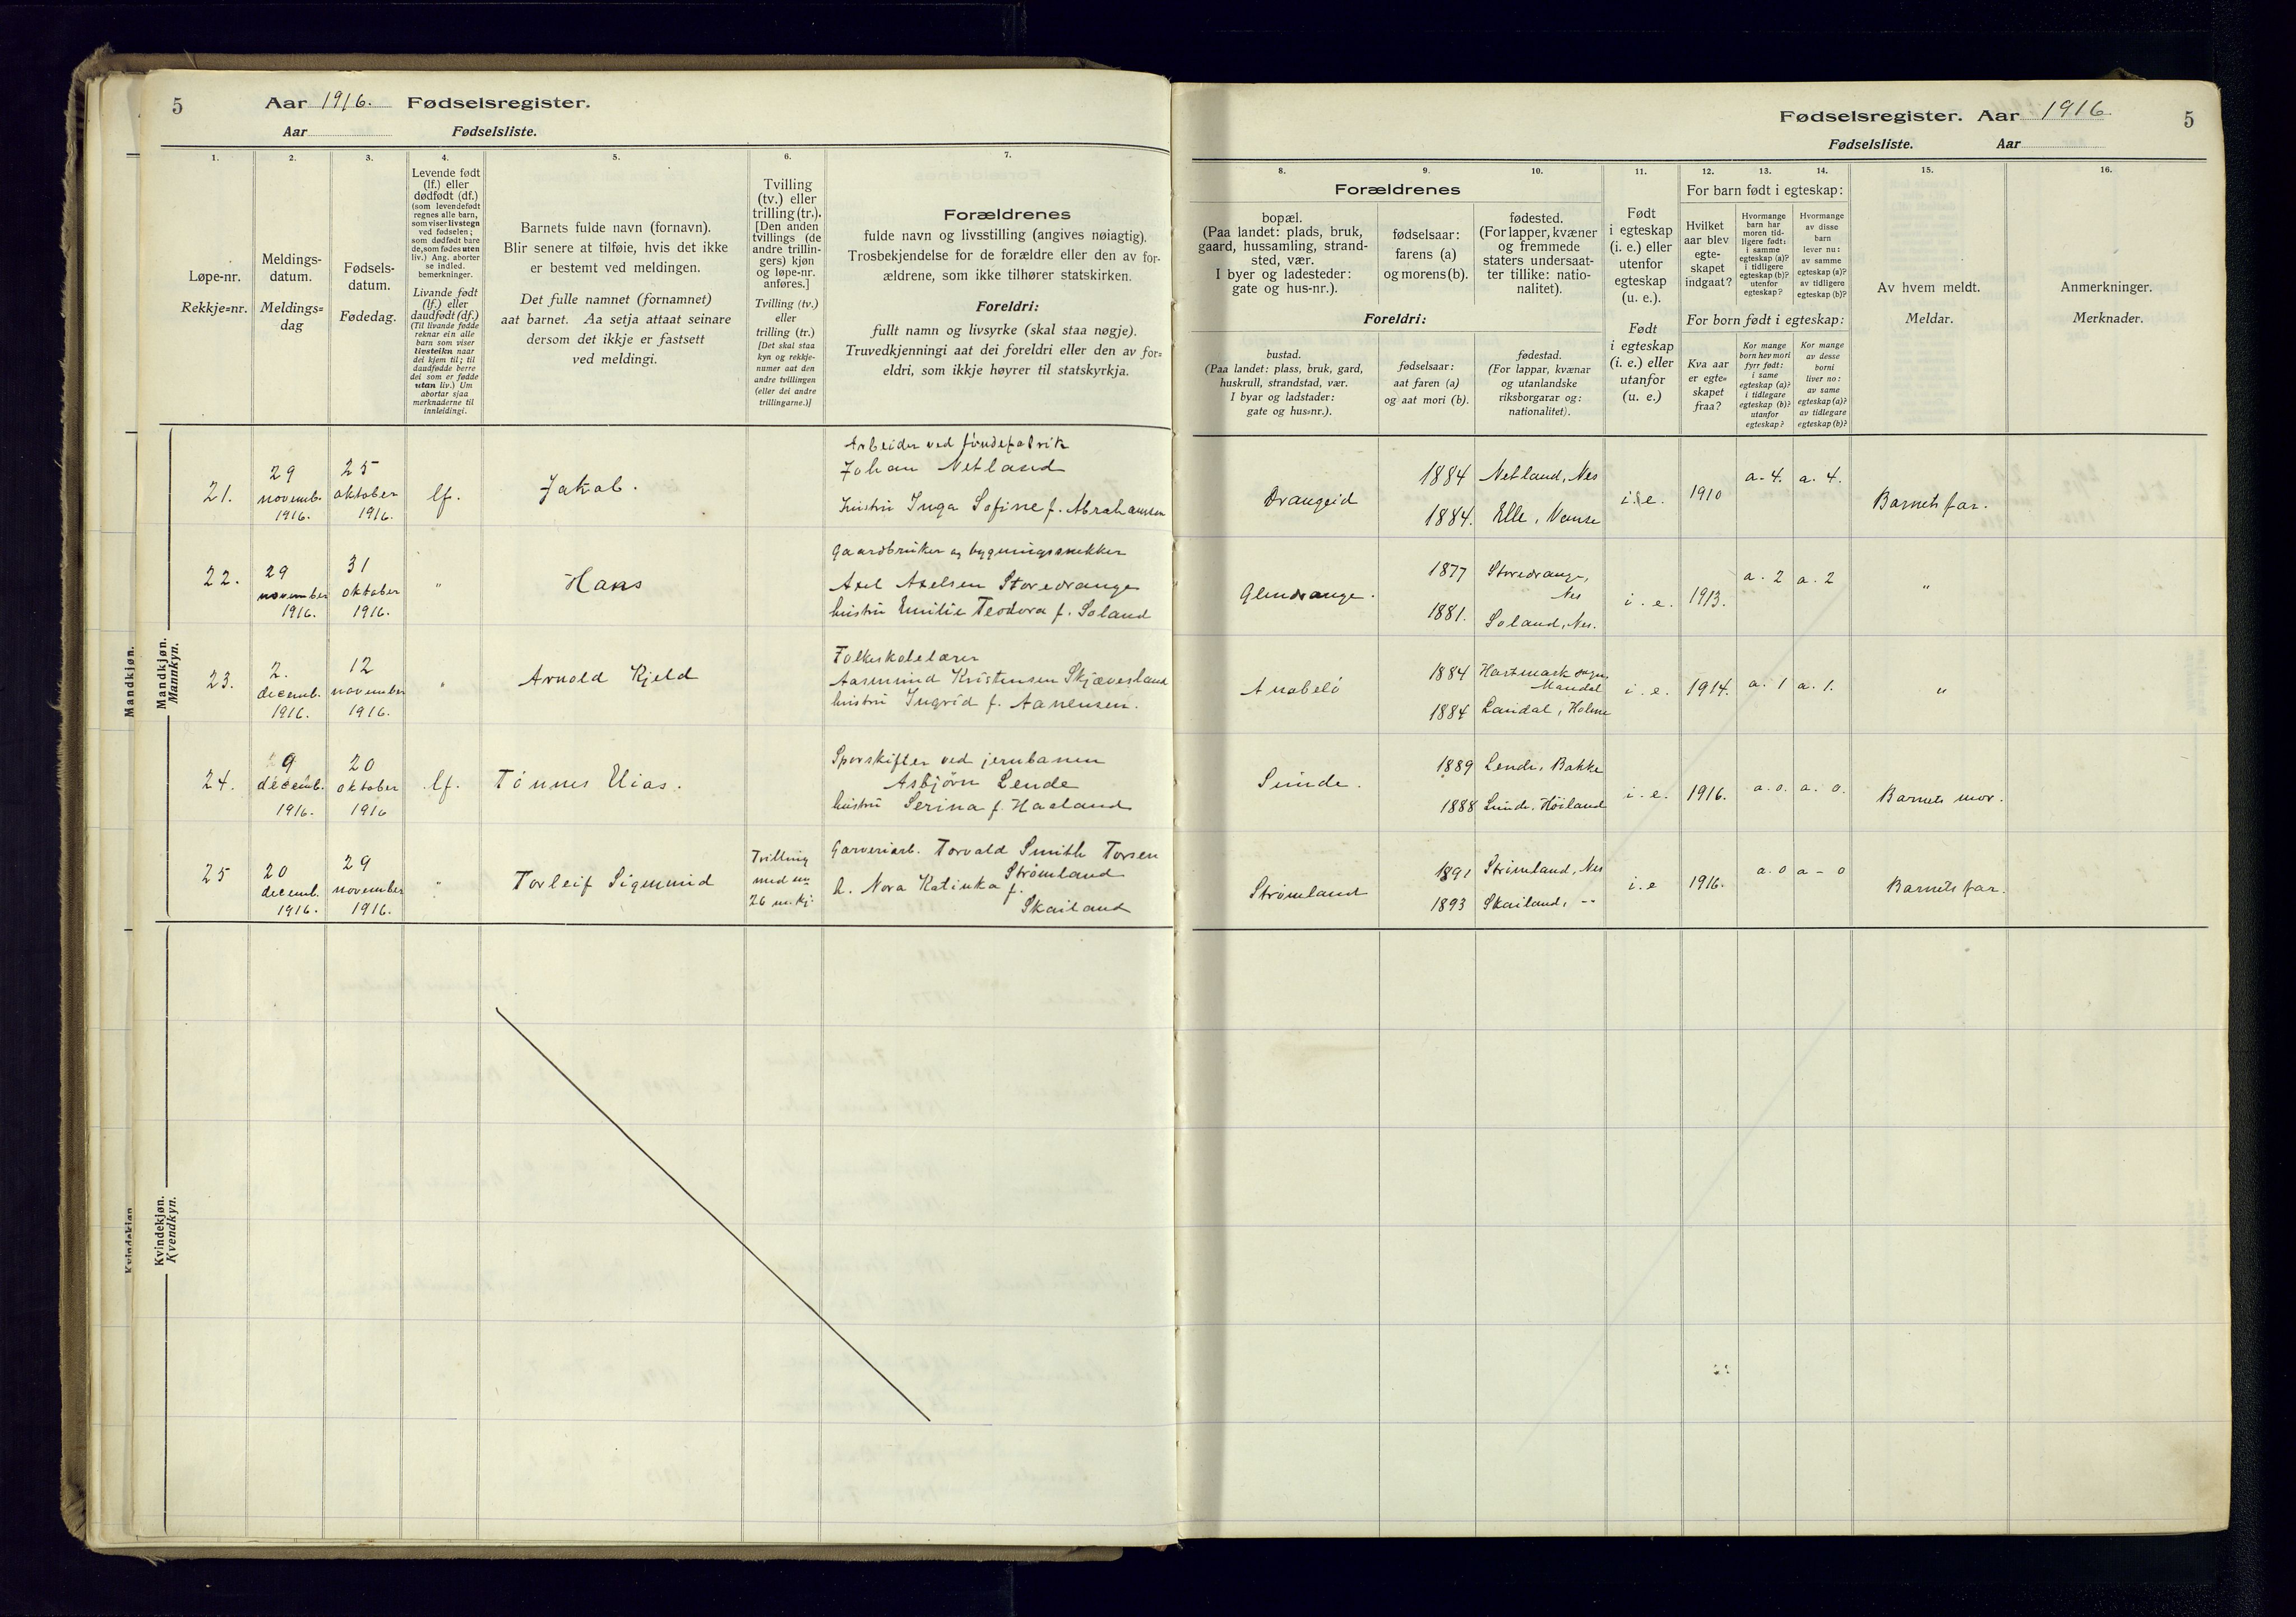 5 Aar 1916. Fødselsregister.
Aar Fødselsliste.
1. 2. 3. 4. 5. 6. 7.
Løpe-nr.
Rekkje=nr.
Meldings-
datum.
Meldings=
dag
Fødsels-
datum.
Fødedag.
Levende født
(lf.) eller
dødfødt (df.)
(som levendefødt
regnes alle barn,
som viser livstegn
ved fødselen;
som dødfødt bare
de, som fødes uten
liv.) Ang. aborter
se indled.
bemerkninger.
Livande født
(lf.) eller
daudfødt (df.)
(Til livande fødde
reknar ein alle
barn som viser
livsteikn naar
dei kjem til; til
daudfødde berre
dei som er fødde
utan liv.) Um
abortar sjaa
merknaderne til
innleidingi.
Barnets fulde navn (fornavn).
Blir senere at tilføie, hvis det ikke
er bestemt ved meldingen.
Det fulle namnet (fornamnet)
aat barnet. Aa setja attaat seinare
dersom det ikkje er fastsett
ved meldingi.
Tvilling
(tv.) eller
trilling (tr.).
[Den anden
tvillings (de
andre trillin-
gers) kjøn
og løpe-nr.
anføres.]
Tvilling (tv.)
eller
trilling (tr.)
[Det skal staa
kyn og rekkje-
numer aat den
andre tvillingen
(eller dei andre
trillingarne.)]
Forældrenes
fulde navn og livsstilling (angives nøiagtig).
Trosbekjendelse for de forældre eller den av for-
ældrene, som ikke tilhører statskirken.
Foreldri:
fullt namn og livsyrke (skal staa nøgje).
Truvedkjenningi aat dei foreldri eller den av for=
eldri, som ikkje høyrer til statskyrkja.
Mandkjøn.
Mandkjøn.
Mannkyn.
21.
29
novemb.
1916.
25
oktober
1916.
lf.
Jakob.
Arbeider ved
Johan Netland
hustru Inga Sofine f. Abrahamsen
22.
29
november
1916.
31
oktober
1916.
"
Hans
Gaardbruker og bygningssnekker
Axel Axelsen Storedrange
hustru Emilie Teodora f. Soland
23.
2.
decemb.
1916.
12
november
1916.
"
Arnold Kjeld
Folkeskolelærer
Aasmund Kristensen Skjævesland
hustru Ingrid f. Aanensen.
24.
9
decemb.
1916.
20
oktober
1916
lf.
Tønnes Elias.
Sporskifter ved jernbanen
Asbjörn Lende
hustru Serina f. Haaland
25
20
decemb.
1916.
29
november
1916.
"
Torleif Sigmund
Tvilling
med nr.
26 m.kj.
Garveriarb. Torvald Smith Torsen
Strømland
h. Nora Katinka f.
Skailand
Kvindekjøn
Kvindekjøn.
Kvendkyn.
Fødselsregister. Aar 1916 5
Fødselsliste. Aar
8. 9. 10. 11. 12. 13. 14. 15. 16.
Forældrenes
bopæl.
(Paa landet: plads, bruk,
gaard, hussamling, strand-
sted, vær.
I byer og ladesteder:
gate og hus-nr.).
fødselsaar:
farens (a)
og morens (b).
fødested.
(For lapper, kvæner
og fremmede
staters undersaat-
ter tillike: natio-
nalitet).
Foreldri:
bustad.
(Paa landet: plass, bruk, gard,
huskrull, strandstad, vær.
I byar og ladstader:
gate og hus=nr.).
fødselsaar:
aat faren (a)
og aat mori (b).
fødestad.
(For lappar, kvænar
og utanlandske
riksborgarar og:
nationalitet).
Født
i egteskap
(i. e.) eller
utenfor
egteskap
(u. e.).
Født
i egteskap
(i. e.) eller
utanfor
(u. e.)
For barn født i egteskap:
Hvilket
aar blev
egte-
skapet
indgaat?
Hvormange
barn har
moren tid-
ligere født:
i samme
egteskap (a)?
i tidligere
egteskap (b)?
utenfor
egteskap?
Hvormange
av disse
barn
lever nu:
av samme
egteskap (a)?
av tidligere
egteskap (b)?
For born født i egteskap:
Kva aar
er egte=
skapet
fraa?
Kor mange
born hev mori
fyrr født:
i same
egteskap (a)?
i tidlegare
egteskap (b)?
utanfor
egteskap?
Kor mange
av desse
borni
liver no:
av same
egteskap (a)?
av tidlegare
egteskap (b)?
Av hvem meldt.
Meldar.
Anmerkninger.
Merknader.
Drangeid
1884
1884.
Netland, Nes
Elle, Vanse
i. e.
1910
a. 4. a. 4.
Barnets far.
Glendrange.
1877
1881.
Storedrange,
Nes
Soland, Nes.
i. e.
1913.
a. 2 a. 2
"
Anabelö
1884
1884
Hartmark sogn,
Mandal
Landal, Holme
i. e.
1914.
a. 1 a. 1.
"
Sunde.
1889
1888
Lende, Bakke
Lunde, Höiland
i. e.
1916.
a. 0. a. 0.
Barnets mor.
Strømland
1891
1893
Strømland, Nes
Skailand, -"-
i. e
1916.
a. 0 a - 0
Barnets far.